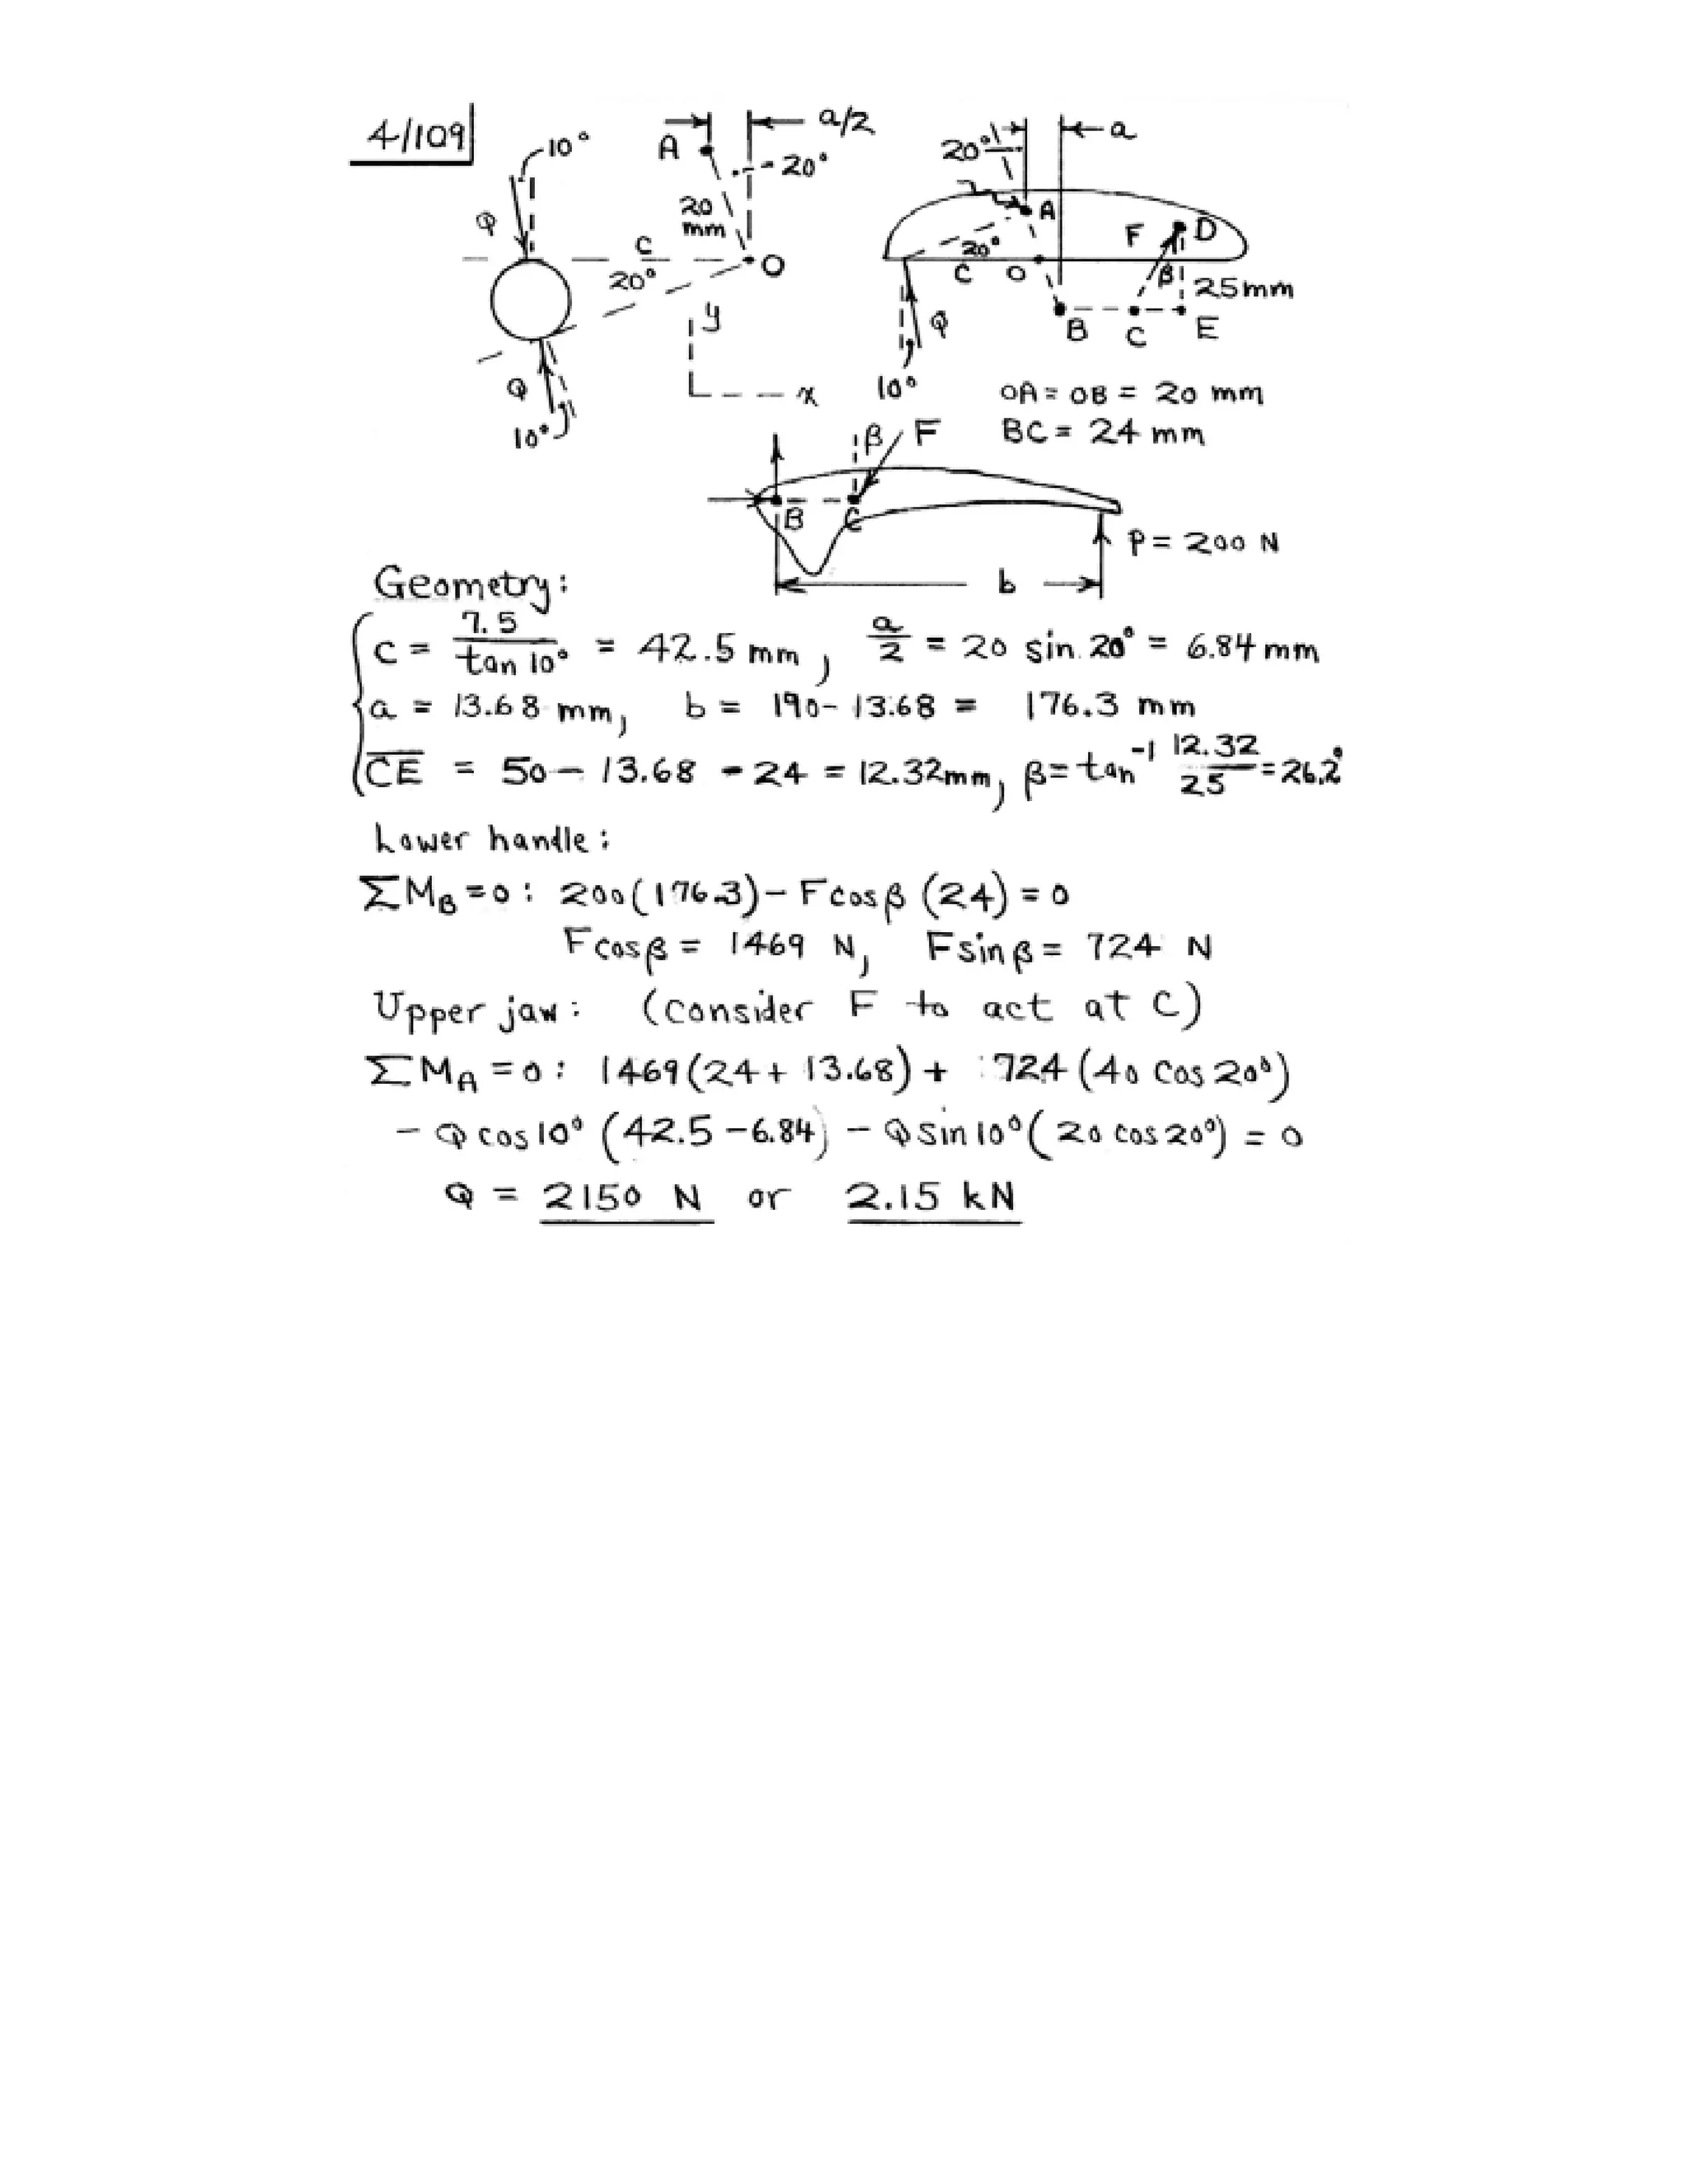 4/109
10°
Q
A
a/2
20°
20 mm
C
20°
O
y
x
Q
10°
20°
a
A
20°
C
O
F
D
β
25mm
B
C
E
Q
10°
OA = OB = 20 mm
BC = 24 mm
β
F
B
C
P = 200 N
b
Geometry:
c = 7.5 / tan 10° = 42.5 mm, a/2 = 20 sin 20° = 6.84 mm
a = 13.68 mm, b = 190 - 13.68 = 176.3 mm
CE = 50 - 13.68 - 24 = 12.32mm, β = tan⁻¹ 12.32/25 = 26.2°
Lower handle:
ΣM_B = 0: 200(176.3) - F cos β (24) = 0
F cos β = 1469 N, F sin β = 724 N
Upper jaw: (consider F to act at C)
ΣM_A = 0: 1469(24 + 13.68) + 724(40 cos 20°)
- Q cos 10° (42.5 - 6.84) - Q sin 10° (20 cos 20°) = 0
Q = 2150 N or 2.15 kN